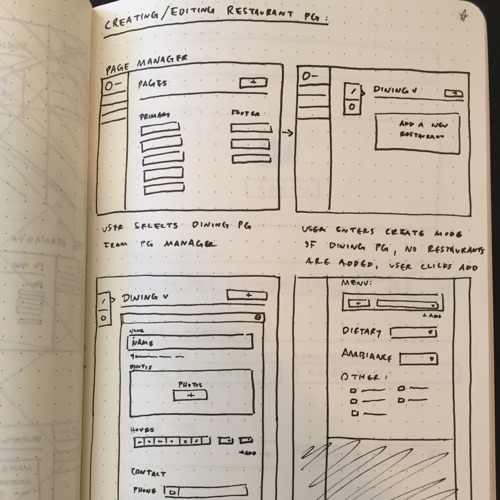 CREATING/EDITING RESTAURANT PG:
PAGE MANAGER
PAGES
+
PRIMARY
FOOTER
DINING
ADD A NEW
RESTAURANT
USER SELECTS DINING PG
FROM PG MANAGER
USER ENTERS CREATE MODE
OF DINING PG, NO RESTAURANTS
ARE ADDED, USER CLICKS ADD
DINING
+
NAME
NAME
PHOTOS
PHOTOS
+
HOURS
+ADD
CONTACT
PHONE
MENU:
+
+ADD
DIETARY
AMBIANCE
OTHER: